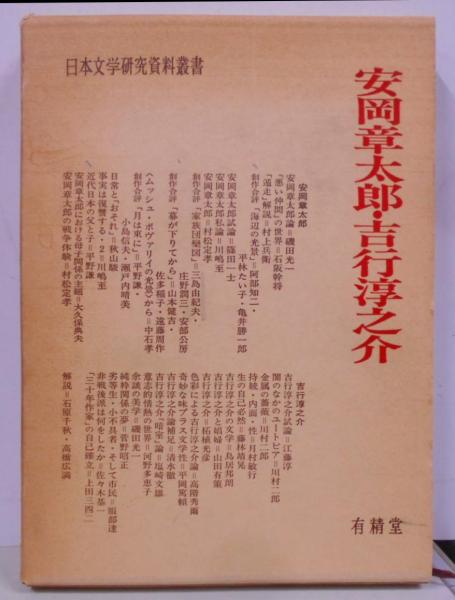 日本文学研究資料叢書
安岡章太郎・吉行淳之介
安岡章太郎
安岡章太郎論＝磯田光一
「悪い仲間」の世界＝石阪幹将
「遁走」解説＝村上兵衛
創作合評「海辺の光景」＝阿部知二・
平林たい子・亀井勝一郎
安岡章太郎試論＝篠田一士
安岡章太郎私論＝川嶋至
安岡章太郎論＝村松定孝
創作合評「家族団欒図」＝三島由紀夫・
庄野潤三・安部公房
創作合評「幕が下りてから」＝山本健吉・
佐多稲子・遠藤周作
〈ムッシュ・ボヴァリイの光景〉から＝中石孝
創作合評「月は東に」＝平野謙・
小島信夫・瀬戸内晴美
日常と「おそれ」＝秋山駿
事実は復讐する・2＝川嶋至
近代日本の父と子＝平野謙
安岡章太郎における母子関係の主題＝大久保典夫
安岡章太郎の戦争体験＝村松定孝
吉行淳之介
吉行淳之介試論＝江藤淳
闇のなかのユートピア＝川村二郎
金属の薔薇＝川村二郎
持続・内面・性＝月村敏行
生の自己必然＝藤林靖晃
吉行淳之介の文学＝鳥居邦朗
吉行淳之介と娼婦＝山田有策
吉行淳之介＝柘植光彦
色彩による吉行淳之介論＝高階秀爾
奇妙な味プラス文学性＝平岡篤頼
吉行淳之介論補足＝清水徹
吉行淳之介「暗室」論＝塩崎文雄
意志的情熱の世界＝河野多恵子
余談の美学＝磯田光一
純粋関係の夢＝菅野昭正
劣等生・小不具者・そして市民＝服部達
非戦後派は何をしたか＝佐々木基一
「三十年作家」の自己確立＝上田三四二
解説＝石原千秋・高橋広満
有精堂